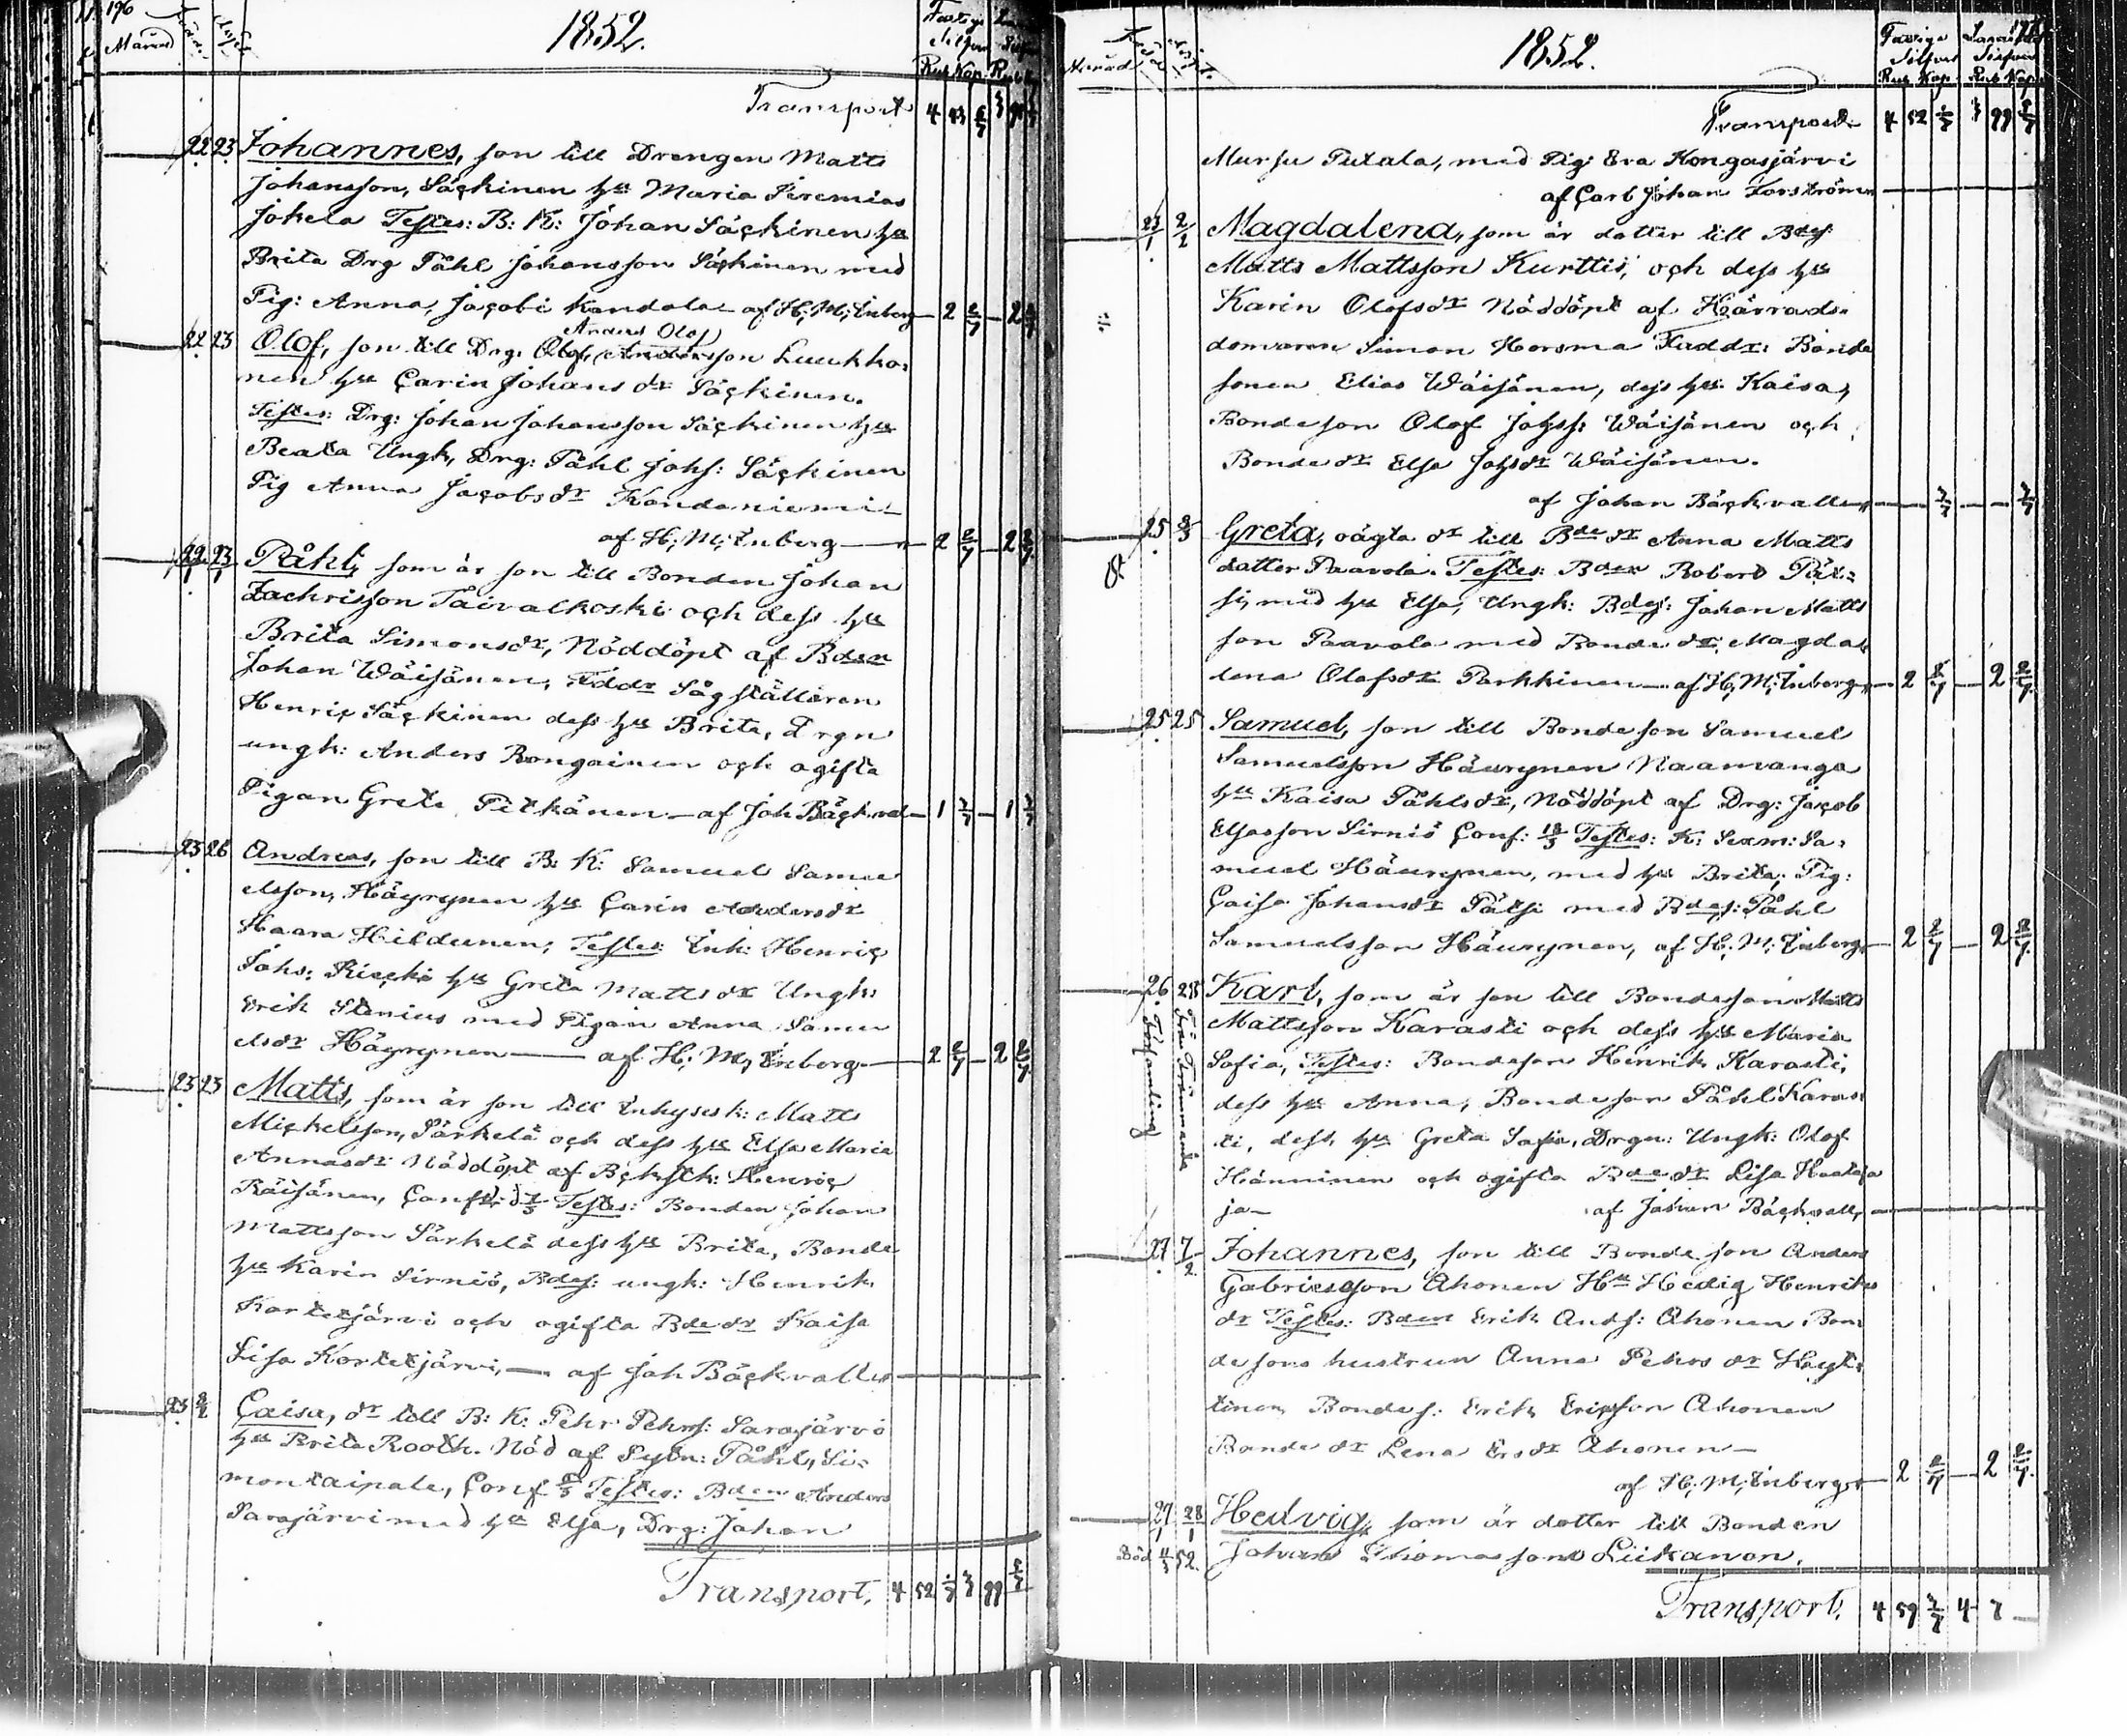 196
Månad
1852.
Fattige Silfver
Rub Kop Rub
Transport 4 43 6/7 3 90
22 23 Johannes, son till Drengen Matts
Johansson, Säçkinen hu Maria Jeremias
Jokela Testes: B: K: Johan Säçkinen hu
Brita Drg Påhl Johansson Säçkinen med
Pig: Anna, Jaçobi Kandola af H: M: Enberg 2 2/7 2 2/7
Anders Olof
22 23 Olof, son till Drg: Olof, Andersson Luukko-
nen hu Çarin Johans dr Säçkinen.
Testes: Drg: Johan Johansson Säçkinen hu
Beata Ungk, Drg: Påhl Johs: Säçkinen
Pig Anna Jaçobs dr Kondaniemi
af H: M: Enberg 2 2/7 2 2/7
22/1 23/1 Påhl, som är son till Bonden Johan
Zachrisson Taivalkoski och dess hu
Brita Simonsdr, Nöddöpt af Bden
Johan Wäisänen, Fddr Såg ställaren
Henriç Säçkinen dess hu Brita, Drgn
ungk: Anders Rongainen och ogifta
Pigan Greta Pitkänen af Joh Bäçkval 1 3/7 1 3/7
23 26 Andreas, son till B: K: Samuel Samu
elsson, Häyrynen hu Çarin Andersdr
Haara Hildunen; Testes: Ink: Henriç
Johs: Riecki hu Greta Matts dr Ungk:
Erik Stenius med Pigan Anna Samu
elsdr Häyrynen af H: M: Enberg 2 2/7 2 2/7
23 23 Matts, som är son till Inhyses k: Matts
Miçkelsson, Särkelä och dess hu Elsa Maria
Annasdr Nöddöpt af Bçkstk: Henriç
Räisänen, Çonf: Testes: Bonden Johan
Mattsson Särkelä dess hu Brita, Bonde
hu Karin Sirniö, Bdes: ungk: Henrik
Kortetjärvi och ogifta Bde dr Kaisa
Lisa Kortetjärvi, af Joh Bäçkvall
23 2/2 Çaisa, dr till B: K: Pehr Pehrs: Sarajärvi
hu Brita Rooth. Nöd af Sytn: Påhl, Si-
montaipale, Çonf Testes: Bden Anders
Sarajärvi med hu Elsa, Drg: Johan
Transport, 4 52 1/7 3 99 5/7
197
Månad
1852.
Fattige Silfver Lasarettet Silfver
Rub Kop Rub Kop
Transport 4 52 1/7 3 99 5/7
Mursu Putala, med Pig: Eva Kongasjärvi
af Çarl Johan Forströmen
23/1 2/2 Magdalena, som är dotter till Bdes:
Matts Mattsson Kurttis, och dess hu
Karin Olofsdr Nöddöpt af Härrads-
domaren Simon Horsma Faddr: Bonde
sonen Elias Wäisänen, dess hu Kaisa,
Bondeson Olof Johss: Wäisänen och
Bonde dr Elsa Johsdr Wäisänen.
af Johan Bäçkvall 3/7 3/7
25 Greta, oägta dr till Bde dr Anna Matts
dotter Paavola. Testes: Bden Robert Pät-
si, med hu Elsa, Ungk: Bdes: Johan Matts
son Paavola med Bonde dr: Magda
lena Olofsdr Parkkinen af H: M: Enberg 2 2/7 2 2/7
25 25 Samuel, son till Bondeson Samuel
Samuelsson Häurynen Naamanga
hu Kaisa Påhlsdr, Nöddöpt af Drg: Jaçob
Eljasson Sirniö Çonf: Testes: K: Sexm: Sa-
muel Häurynen, med hu Brita, Pig:
Çaisa Johansdr Pätsi med Bdes: Påhl
Samuelsson Häurynen, af H: M: Enberg 2 2/7 2 2/7
26 28 Karl, som är son till Bondeson Matts
Mattsson Karasti och dess hu Maria
Sofia, Testes: Bondeson Henrik Karasti,
dess hu Anna, Bondeson Påhl Karas
ti, dess hu Greta Sofia, Drgn: Ungk: Olof
Hänninen och ogifta Bde dr Lisa Haataja
ja af Johan Bäçkvall
27 7/2 Johannes, son till Bonde son Anders
Gabrielsson Ahonen Hu Hedig Henriks
dr Testes: Bden Erik Ands: Ahonen Bon
de sons hustrun Anna Pehrs dr Heyt-
tinen Bondes: Erik Ericsson Ahonen
Bonde dr Lena Ersdr Ahonen
af H: M: Enberg 2 2/7 2 2/7
27/1 28/1 Hedvig, som är dotter till Bonden
Död 52. Johan Thomassons Liikanen.
Transport, 4 59 3/7 4 7